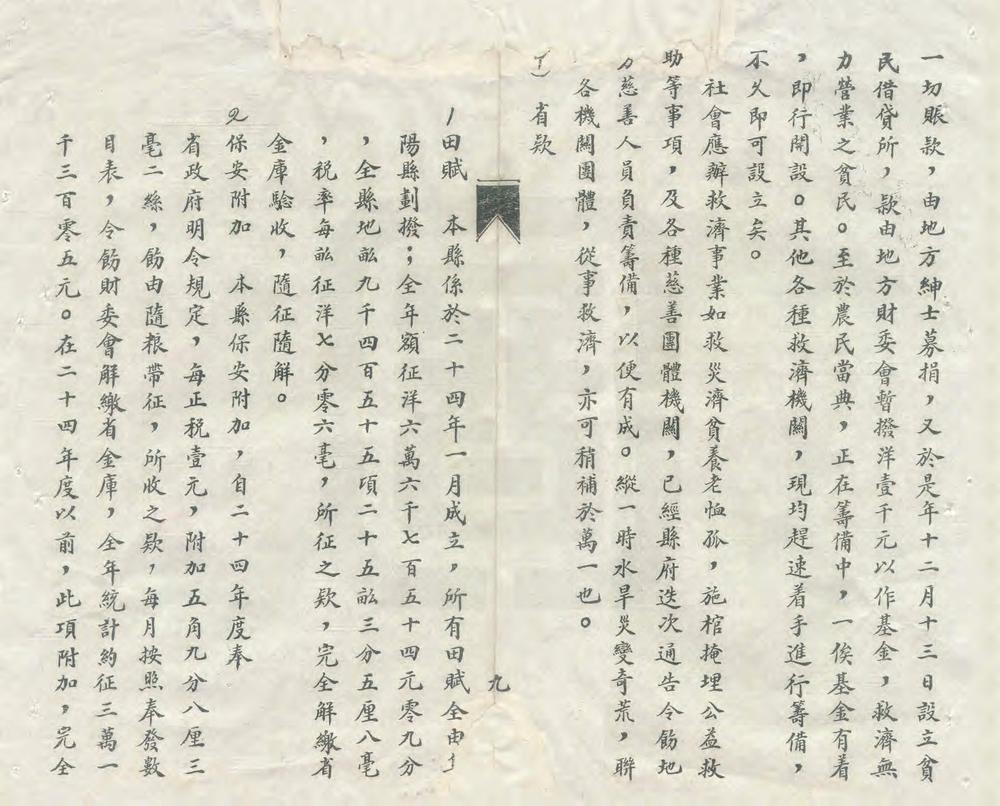 一切賬款，由地方紳士募捐，又於是年十二月十三日設立貧
民借貸所，款由地方財委會暫撥洋壹千元以作基金，救濟無
力營業之貧民。至於農民當典，正在籌備中，一俟基金有着
，即行開設。其他各種救濟機關，現均趕速着手進行籌備，
不久即可設立矣。
社會應辦救濟事業如救災濟貧養老恤孤，施棺掩埋公益救
助等事項，及各種慈善團體機關，已經縣府迭次通告令飭地
方慈善人員負責籌備，以便有成。縱一時水旱災變奇荒，聯
各機關團體，從事救濟，亦可稍補於萬一也。
省款
九
1田賦　本縣係於二十四年一月成立，所有田賦全由
陽縣劃撥；全年額征洋六萬六千七百五十四元零九分
，全縣地畆九千四百五十五項二十五畆三分五厘八毫
，稅率每畆征洋七分零六毫，所征之欵，完全解繳省
金庫驗收，隨征隨解。
2保安附加　本縣保安附加，自二十四年度奉
省政府明令規定，每正稅壹元，附加五角九分八厘三
毫二絲，飭由隨粮帶征，所收之欵，每月按照奉發數
目表，令飭財委會解繳省金庫，全年統計約征三萬一
千三百零五元。在二十四年度以前，此項附加，完全